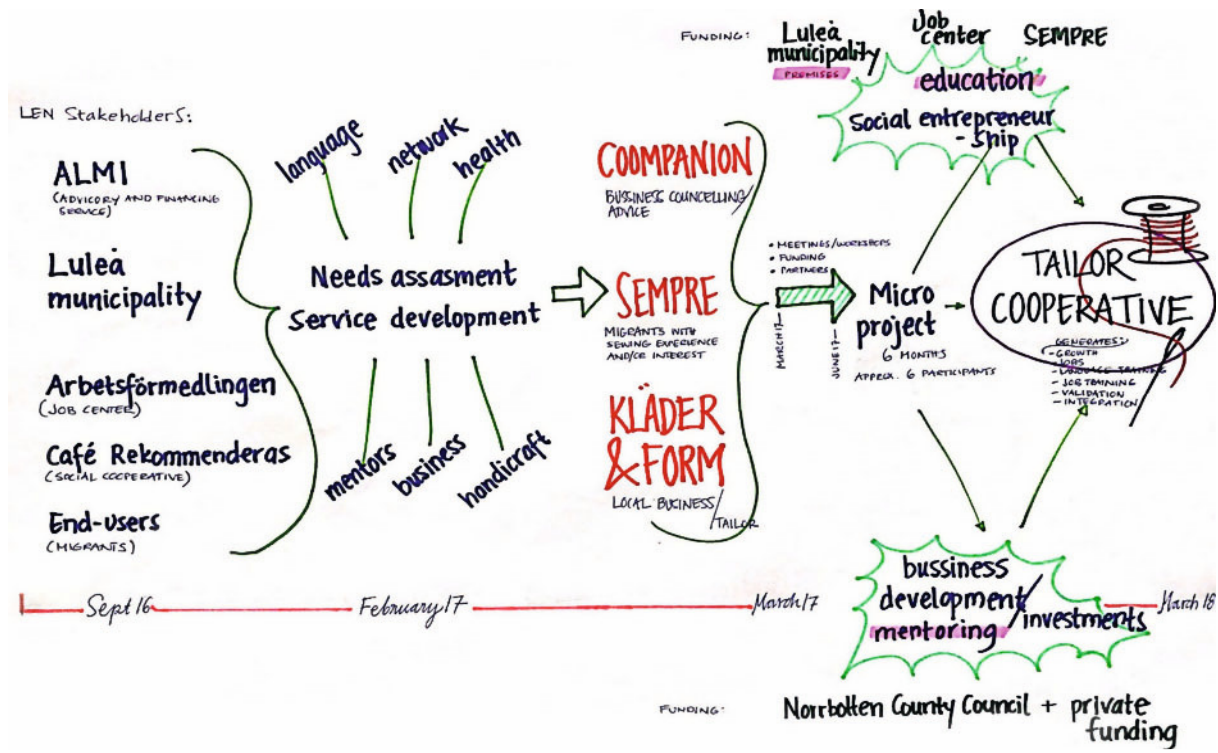 LEN StakeholderS:
ALMI
(ADVICORY AND FINANCING
SERVICE)
Luleå
municipality
Arbetsförmedlingen
(JOB CENTER)
Café Rekommenderas
(SOCIAL COOPERATIVE)
End-users
(MIGRANTS)
language
network
health
Needs assasment
Service development
mentors
business
handicraft
COOMPANION
BUSSINESS COUNCELLING/
ADVICE
SEMPRE
MIGRANTS WITH
SEWING EXPERIENCE
AND/OR INTEREST
KLÄDER
&FORM
LOCAL BUSINESS/
TAILOR
• MEETINGS/WORKSHOPS
• FUNDING
• PARTNERS
MARCH 17
JUNE 17
Micro
project
6 MONTHS
APPROX. 6 PARTICIPANTS
FUNDING:
Luleå
municipality
PREMISES
Job
center
SEMPRE
education
Social entrepreneur
-Ship
TAILOR
COOPERATIVE
GENERATES:
- GROWTH
- JOBS
- LANGUAGE TRAINING
- JOB TRAINING
- VALIDATION
- INTEGRATION
bussiness
development/
mentoring
investments
Sept 16
February 17
March 17
March 18
FUNDING:
Norrbotten County Council + private
funding